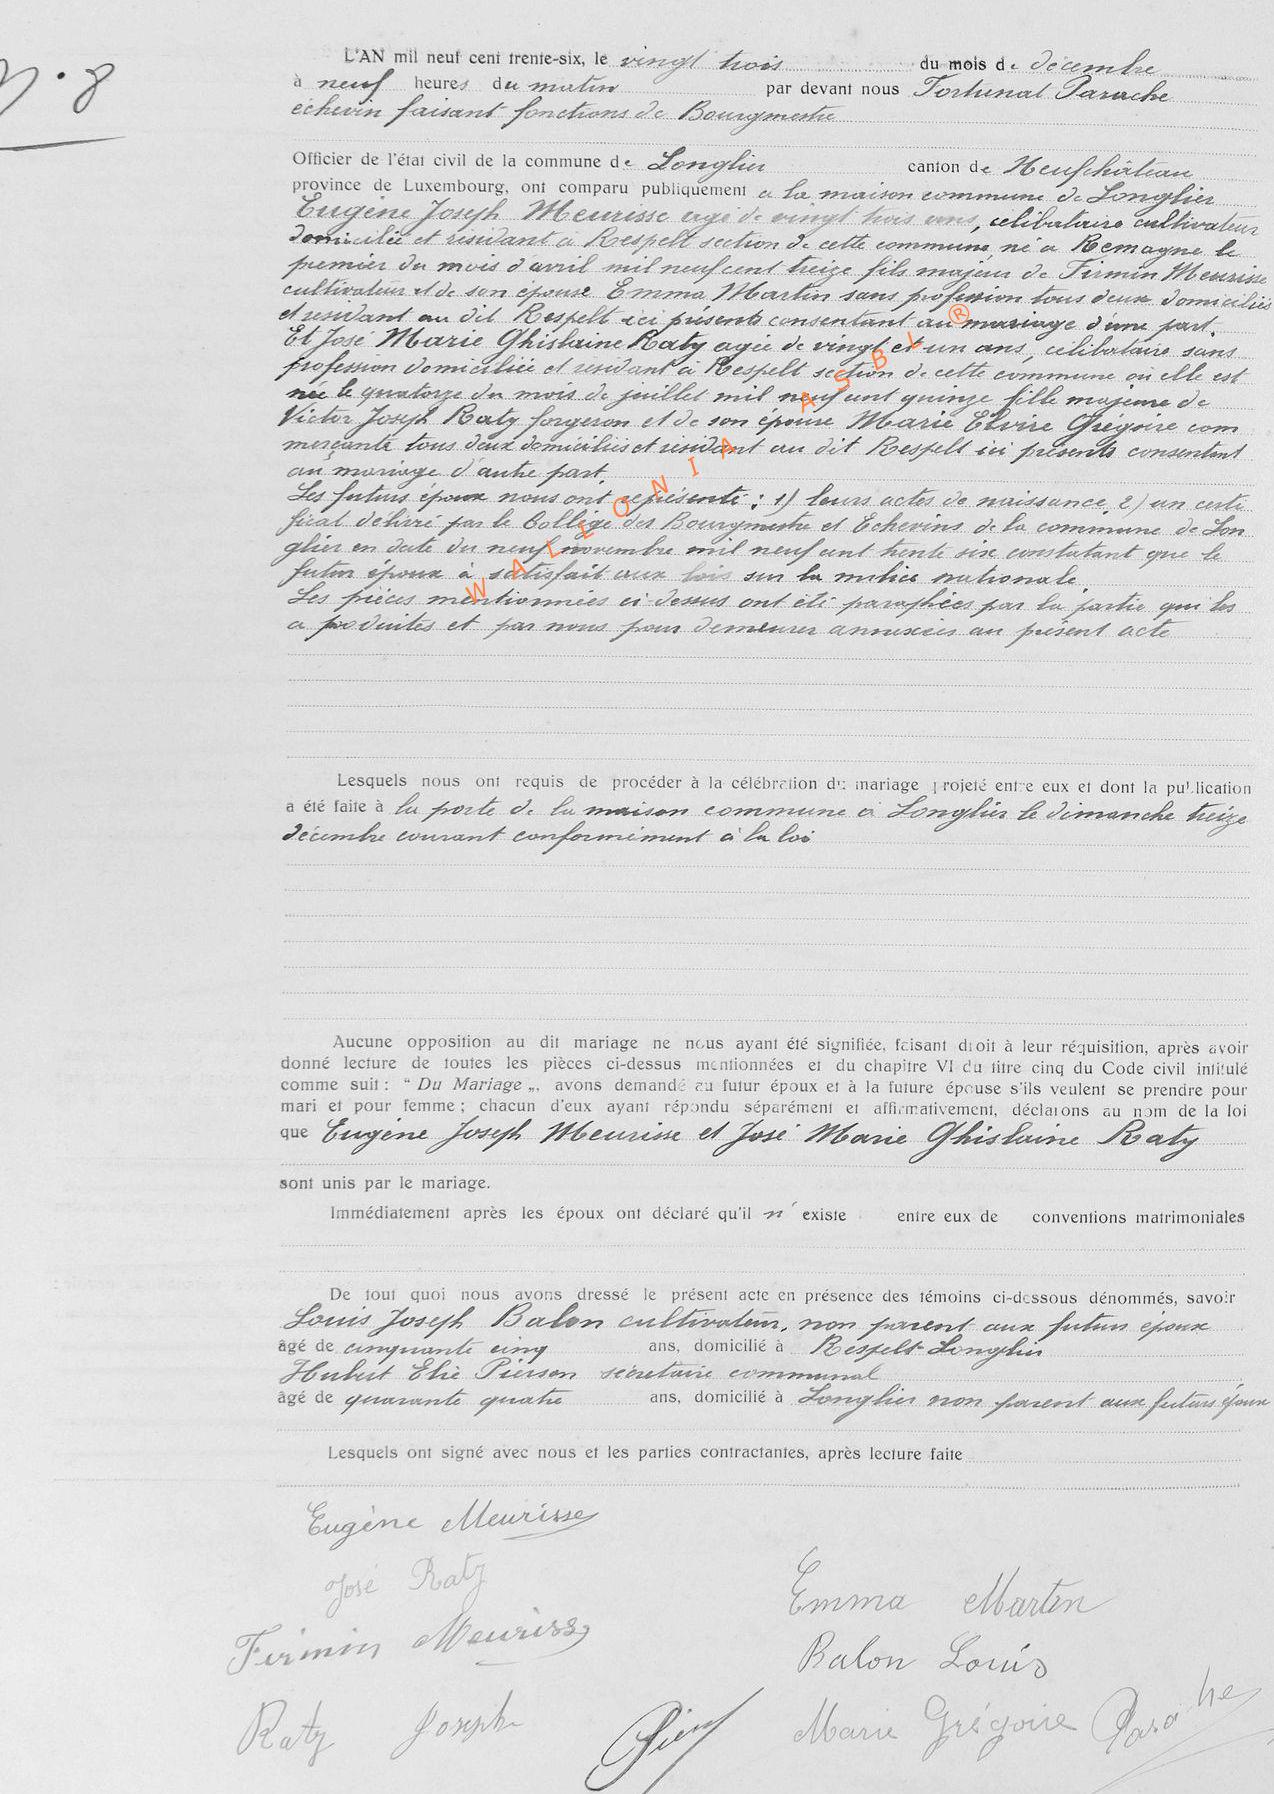 N. 8
L'AN mil neuf cent trente-six, le vingt trois du mois de décembre
à neuf heures du matin par devant nous Fortunat Parache
échevin faisant fonctions de Bourgmestre
Officier de l'état civil de la commune de Longlier canton de Neufchâteau
province de Luxembourg, ont comparu publiquement a la maison commune de Longlier
Eugène Joseph Meurisse agé de vingt trois ans, célibataire cultivateur
domicilié et résidant à Respelt section de cette commune né a Remagne le
premier du mois d'avril mil neuf cent treize fils majeur de Firmin Meurisse
cultivateur et de son épouse Emma Martin sans profession tous deux domiciliés
et résidant au dit Respelt ici présents consentant au mariage d'une part.
Et José Marie Ghislaine Raty agée de vingt et un ans, célibataire sans
profession domiciliée et résidant a Respelt section de cette commune où elle est
née le quatorze du mois de juillet mil neuf cent quinze fille majeure de
Victor Joseph Raty forgeron et de son épouse Marie Elvire Grégoire com
merçante tous deux domiciliés et résidant au dit Respelt ici présents consentant
au mariage d'autre part.
Les futurs époux nous ont représenté : 1) leurs actes de naissance. 2) un certi
ficat délivré par le Collège des Bourgmestre et Echevins de la commune de Lon
glier en date du neuf novembre mil neuf cent trente six constatant que le
futur époux à satisfait aux lois sur la milice nationale
Les pièces mentionnées ci dessus ont été paraphées par la partie qui les
a produites et par nous pour demeurer annexées au présent acte
Lesquels nous ont requis de procéder à la célébration du mariage projeté entre eux et dont la publication
a été faite à la porte de la maison commune à Longlier le dimanche treize
décembre courant conformément à la loi
Aucune opposition au dit mariage ne nous ayant été signifiée, faisant droit à leur réquisition, après avoir
donné lecture de toutes les pièces ci-dessus mentionnées et du chapitre VI du titre cinq du Code civil intitulé
comme suit : " Du Mariage „, avons demandé au futur époux et à la future épouse s'ils veulent se prendre pour
mari et pour femme ; chacun d'eux ayant répondu séparément et affirmativement, déclarons au nom de la loi
que Eugène Joseph Meurisse et José Marie Ghislaine Raty
sont unis par le mariage.
Immédiatement après les époux ont déclaré qu'il n'existe entre eux de conventions matrimoniales
De tout quoi nous avons dressé le présent acte en présence des témoins ci-dessous dénommés, savoir
Louis Joseph Balon cultivateur, non parent aux futurs époux
âgé de cinquante cinq ans, domicilié à Respelt-Longlier
Hubert Elie Pierson secrétaire communal
âgé de quarante quatre ans, domicilié à Longlier non parent aux futurs époux
Lesquels ont signé avec nous et les parties contractantes, après lecture faite
Eugène Meurisse
José Raty
Emma Martin
Firmin Meurisse
Balon Louis
Raty Joseph
Marie Grégoire
Parache
WALLONIA ASBL ®